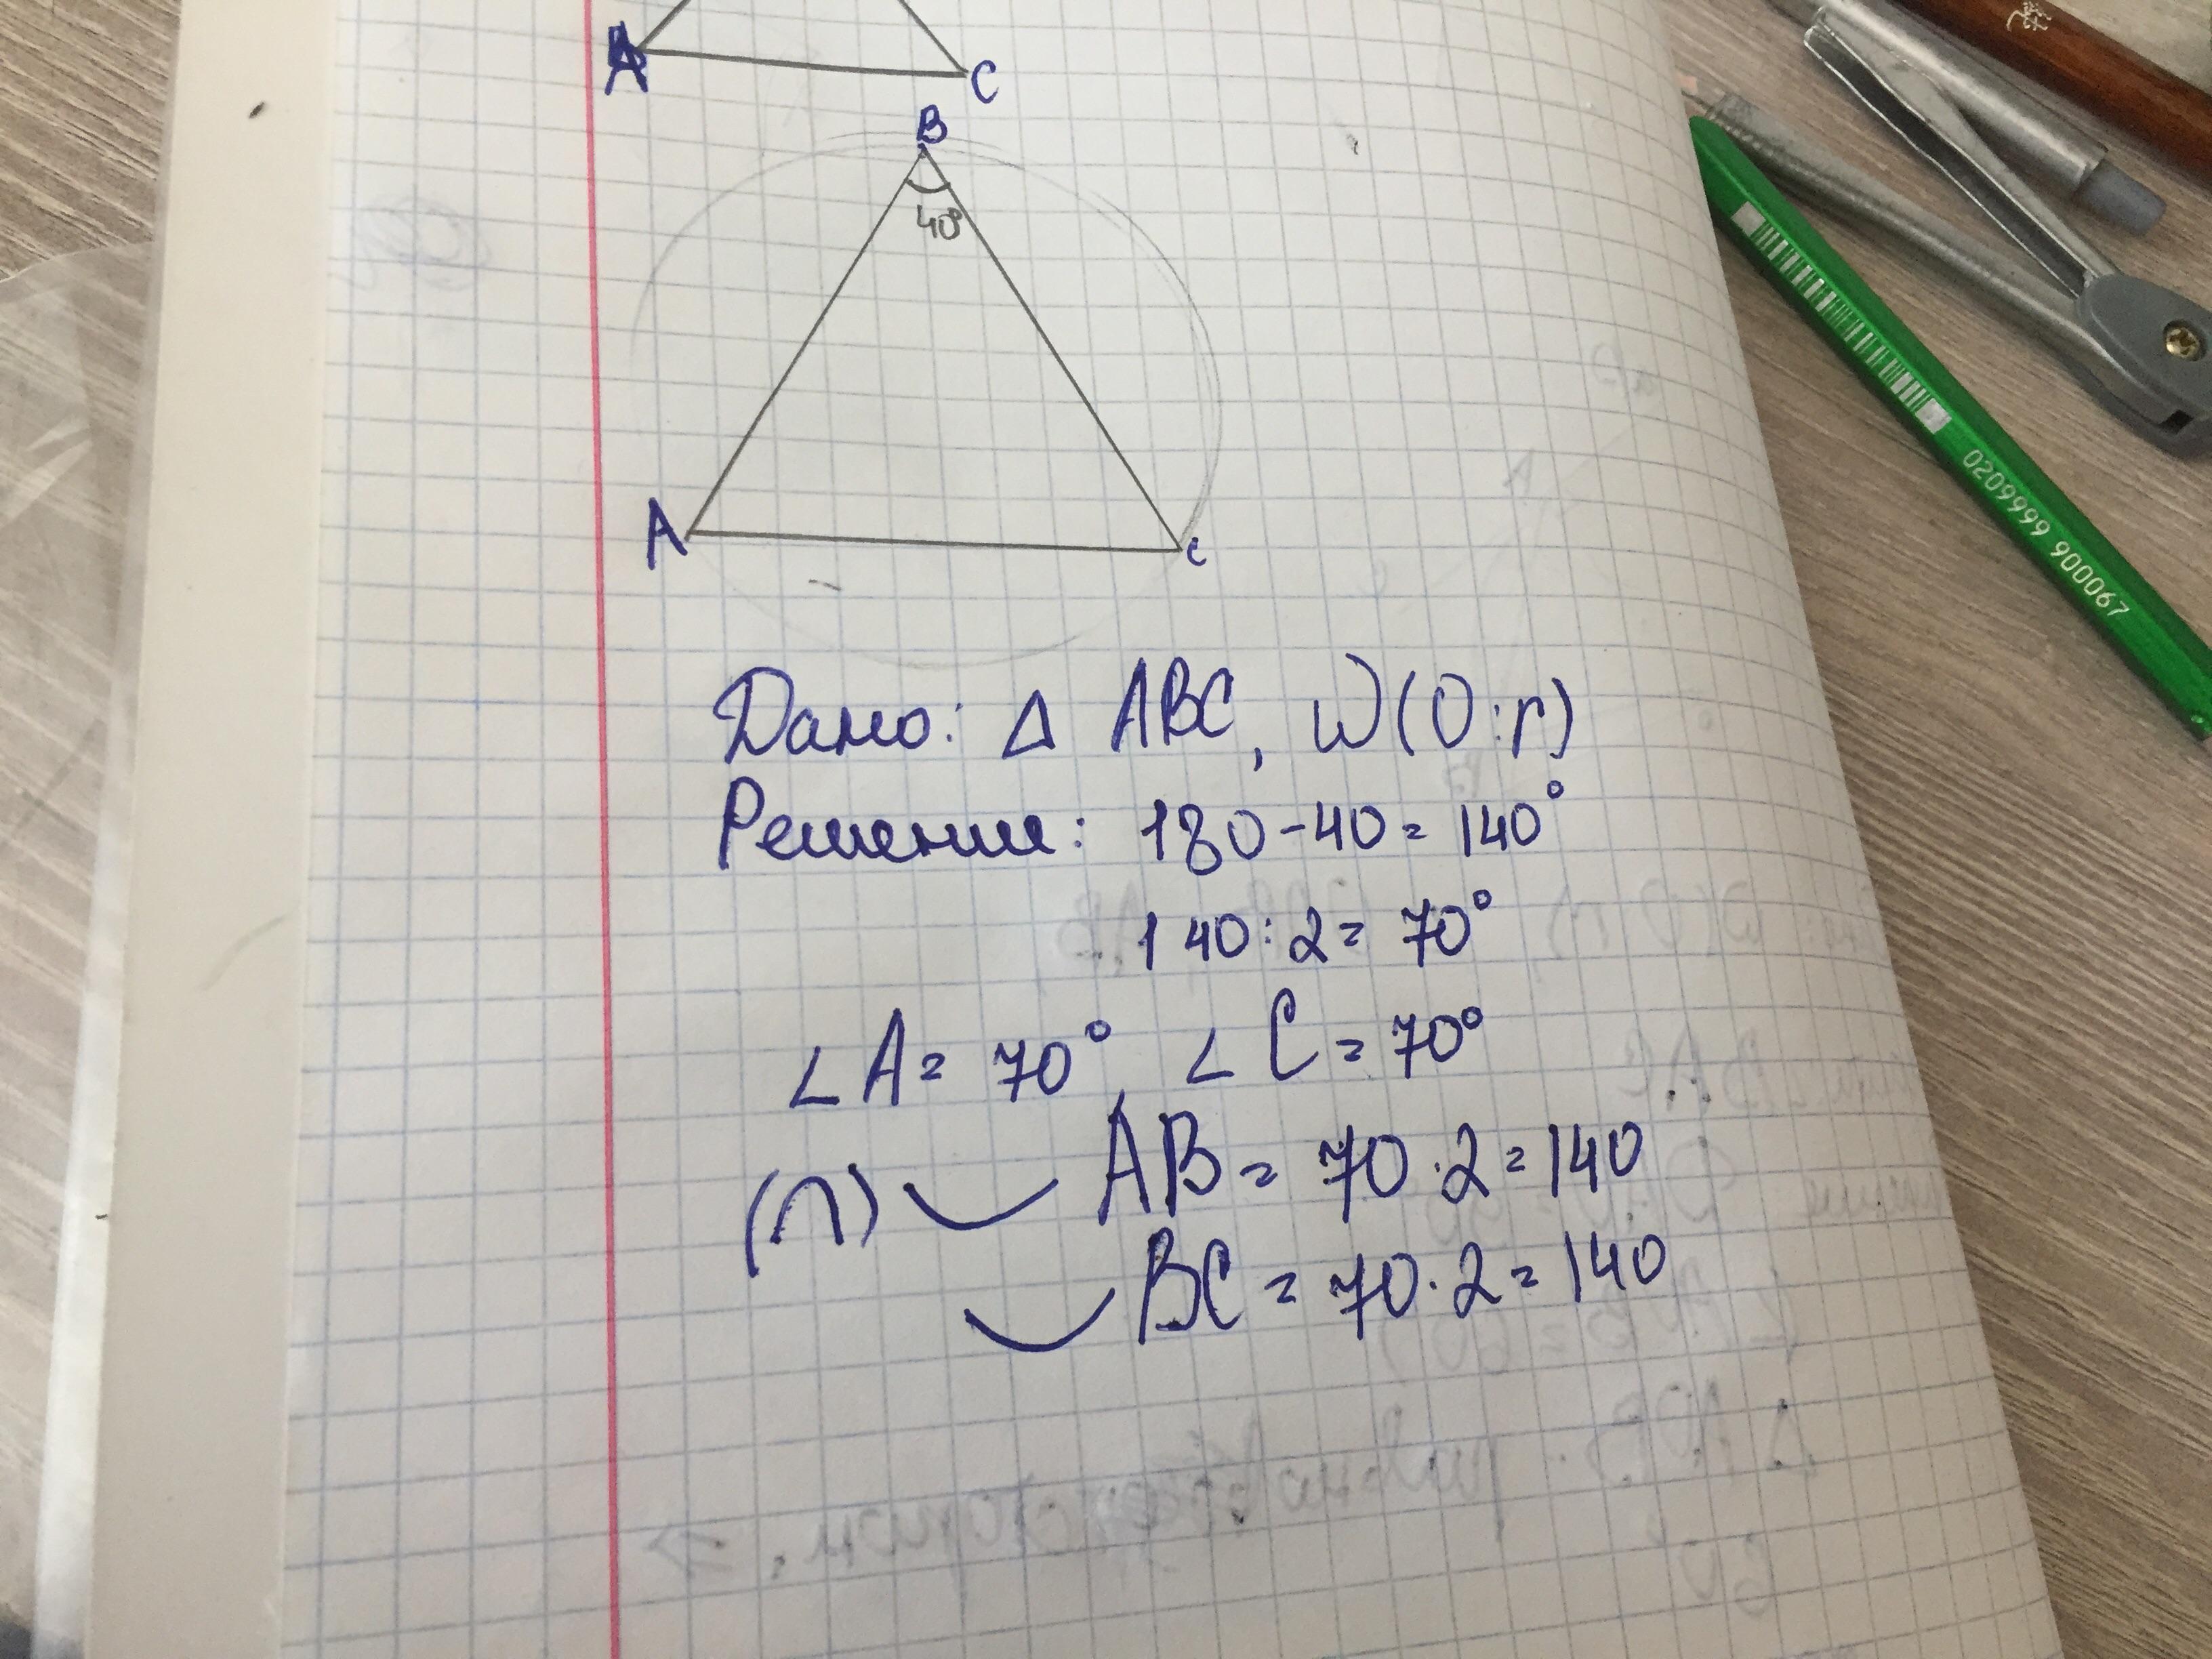 A C
B
40°
A c
Дано: Δ ABC, W(O:r)
Решение: 180-40=140°
140:2=70°
∠A=70°, ∠C=70°
(∩) ◡ AB=70·2=140
◡ BC=70·2=140
0209999 900067